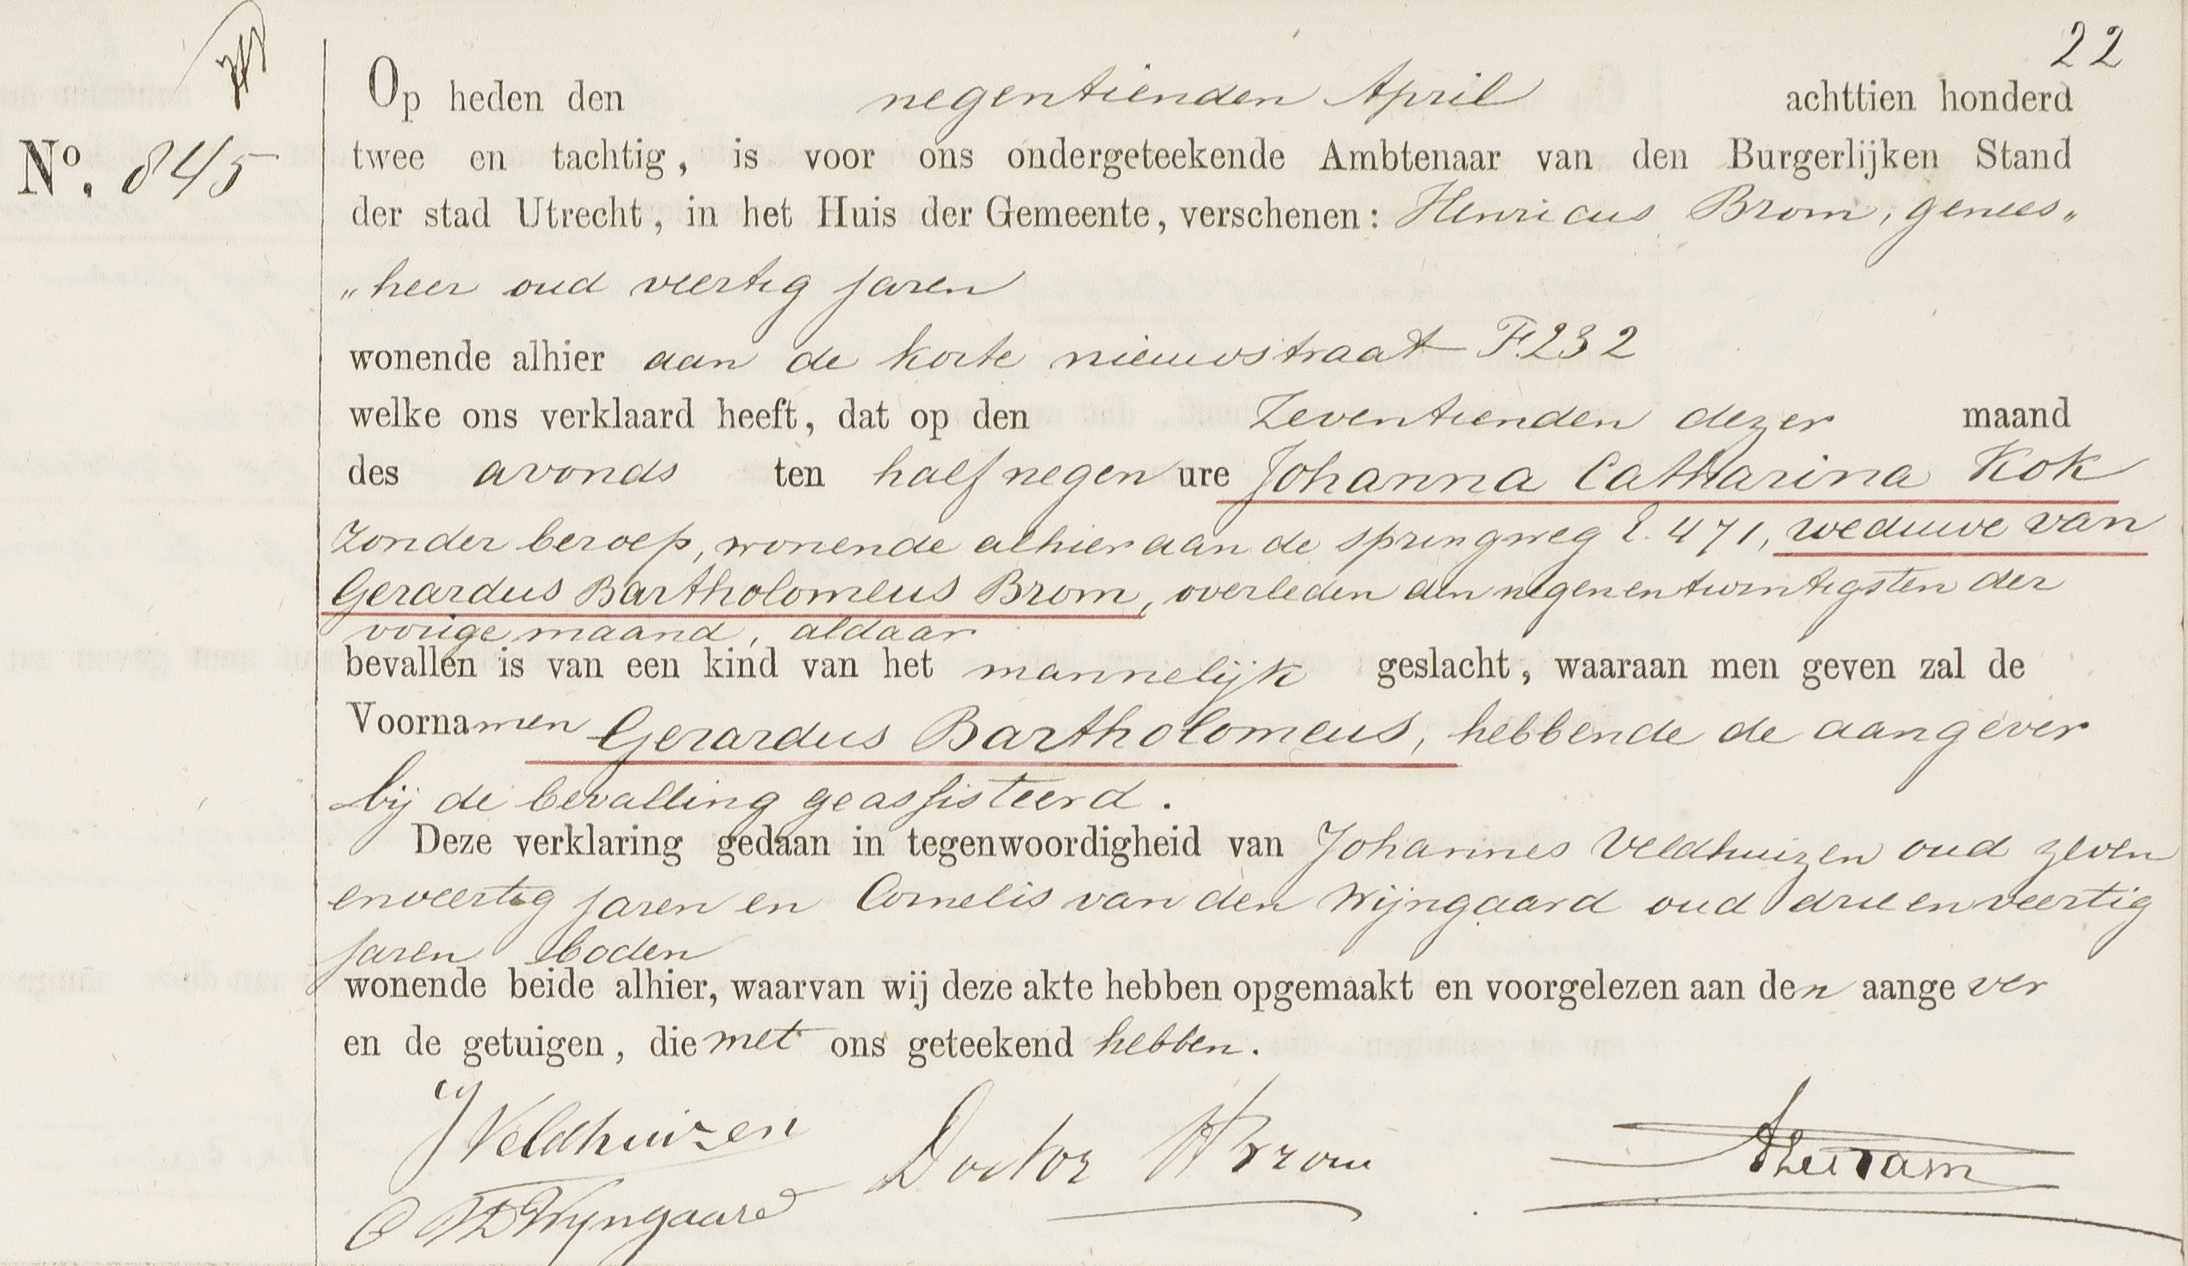 22
No. 845
Op heden den negentienden April achttien honderd
twee en tachtig, is voor ons ondergeteekende Ambtenaar van den Burgerlijken Stand
der stad Utrecht, in het Huis der Gemeente, verschenen: Henricus Brom, genees„
„heer oud veertig jaren
wonende alhier aan de korte nieuwstraat F.232
welke ons verklaard heeft, dat op den Zeventienden dezer maand
des avonds ten half negen ure Johanna Catharina Kok
zonder beroep, wonende alhier aan de springweg E. 471, weduwe van
Gerardus Bartholomeus Brom, overleden den negenentwintigsten der
vorige maand, aldaar
bevallen is van een kind van het mannelijk geslacht, waaraan men geven zal de
Voornamen Gerardus Bartholomeus, hebbende de aangever
bij de bevalling geassisteerd.
Deze verklaring gedaan in tegenwoordigheid van Johannes Veldhuizen oud zeven
enveertig jaren en Cornelis van den Wijngaard oud drieenveertig
jaren boden
wonende beide alhier, waarvan wij deze akte hebben opgemaakt en voorgelezen aan den aangever
en de getuigen, die met ons geteekend hebben.
J Veldhuizen Doctor H Brom
C VD Wijngaard